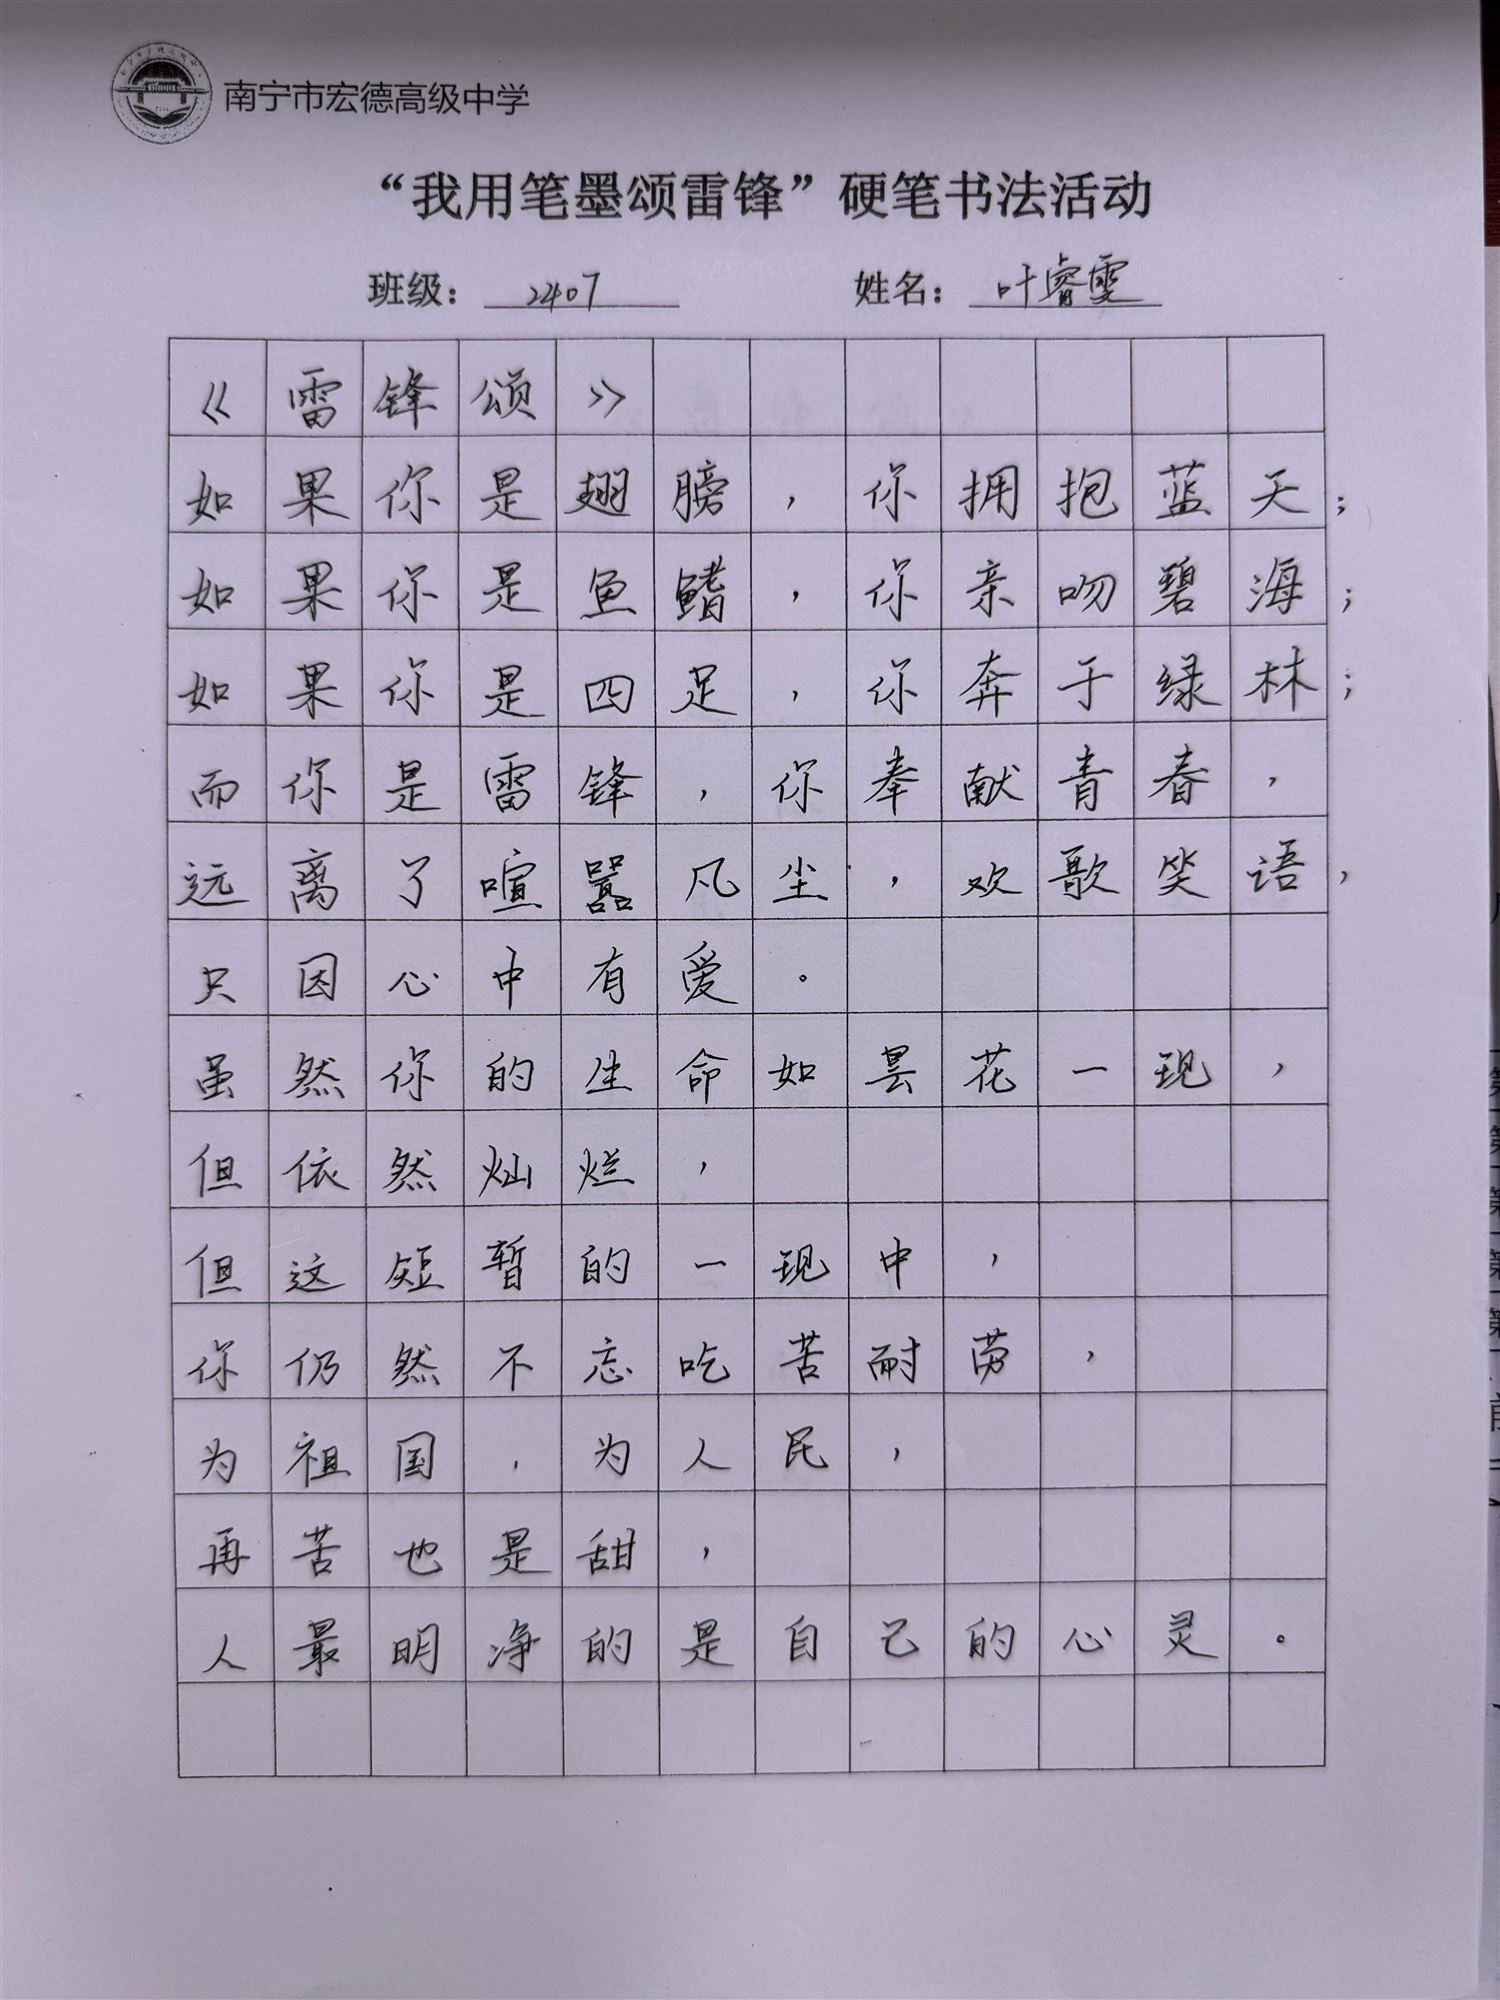 南宁市宏德高级中学
“我用笔墨颂雷锋”硬笔书法活动
班级：2407 姓名：叶睿雯
《雷锋颂》
如果你是翅膀，你拥抱蓝天；
如果你是鱼鳍，你亲吻碧海；
如果你是四足，你奔于绿林；
而你是雷锋，你奉献青春，
远离了喧嚣凡尘，欢歌笑语，
只因心中有爱。
虽然你的生命如昙花一现，
但依然灿烂，
但这短暂的一现中，
你仍然不忘吃苦耐劳，
为祖国，为人民，
再苦也是甜，
人最明净的是自己的心灵。